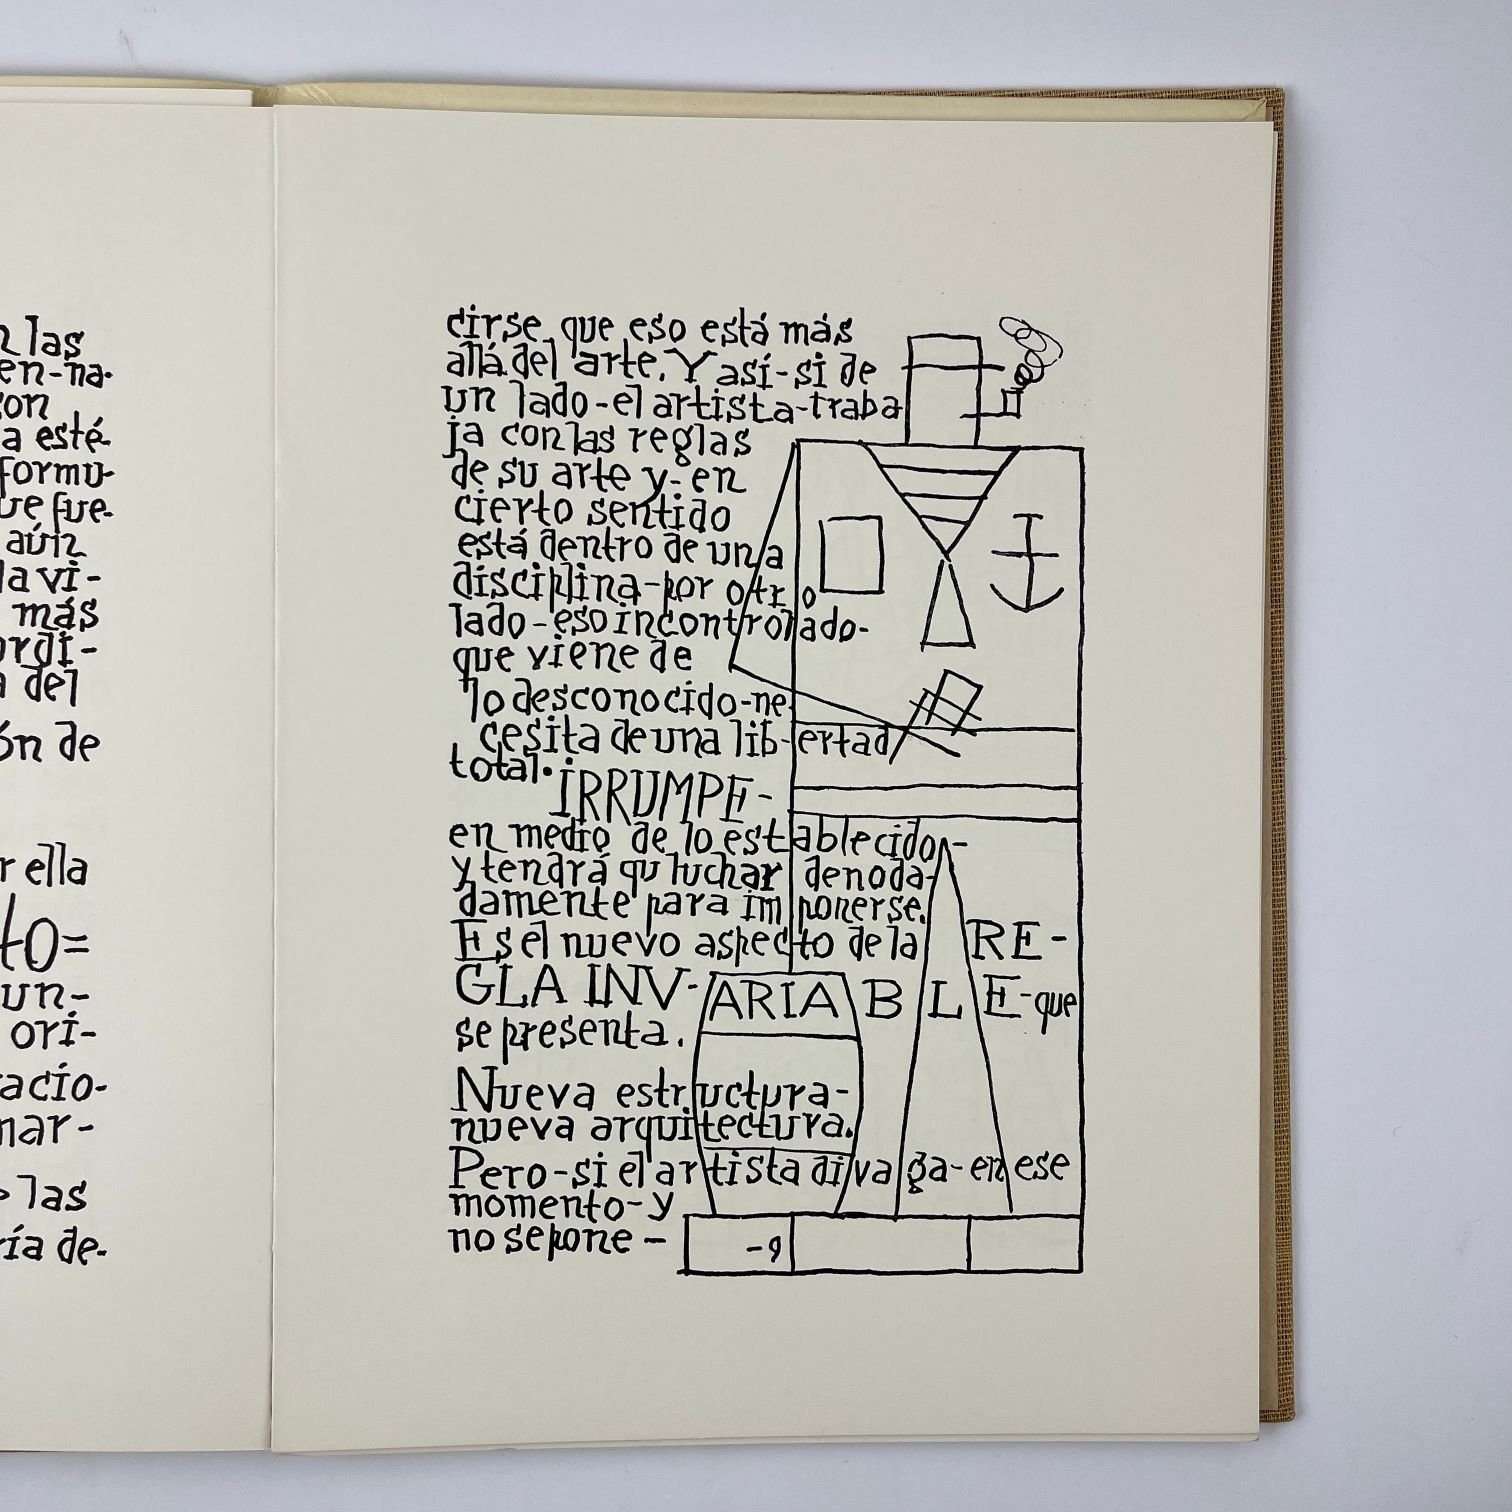 n las
en-na-
con
a esté-
formu-
ue fue-
aún
la vi-
más
ordi-
a del
ón de
r ella
to=
un-
ori-
racio-
mar-
las
ría de-
cirse que eso está más
allá del arte. Y así-si de
un lado-el artista-traba
ja con las reglas
de su arte y-en
cierto sentido
está dentro de una
disciplina-por otro
lado-eso incontrolado-
que viene de
lo desconocido-ne-
cesita de una lib-ertad
total.
IRRUMPE-
en medio de lo establecido-
y tendrá qu luchar denoda-
damente para imponerse.
Es el nuevo aspecto de la RE-
GLA INV-ARIABLE-que
se presenta.
Nueva estructura-
nueva arquitectura.
Pero-si el artista divaga-en ese
momento-y
no se pone-
-9